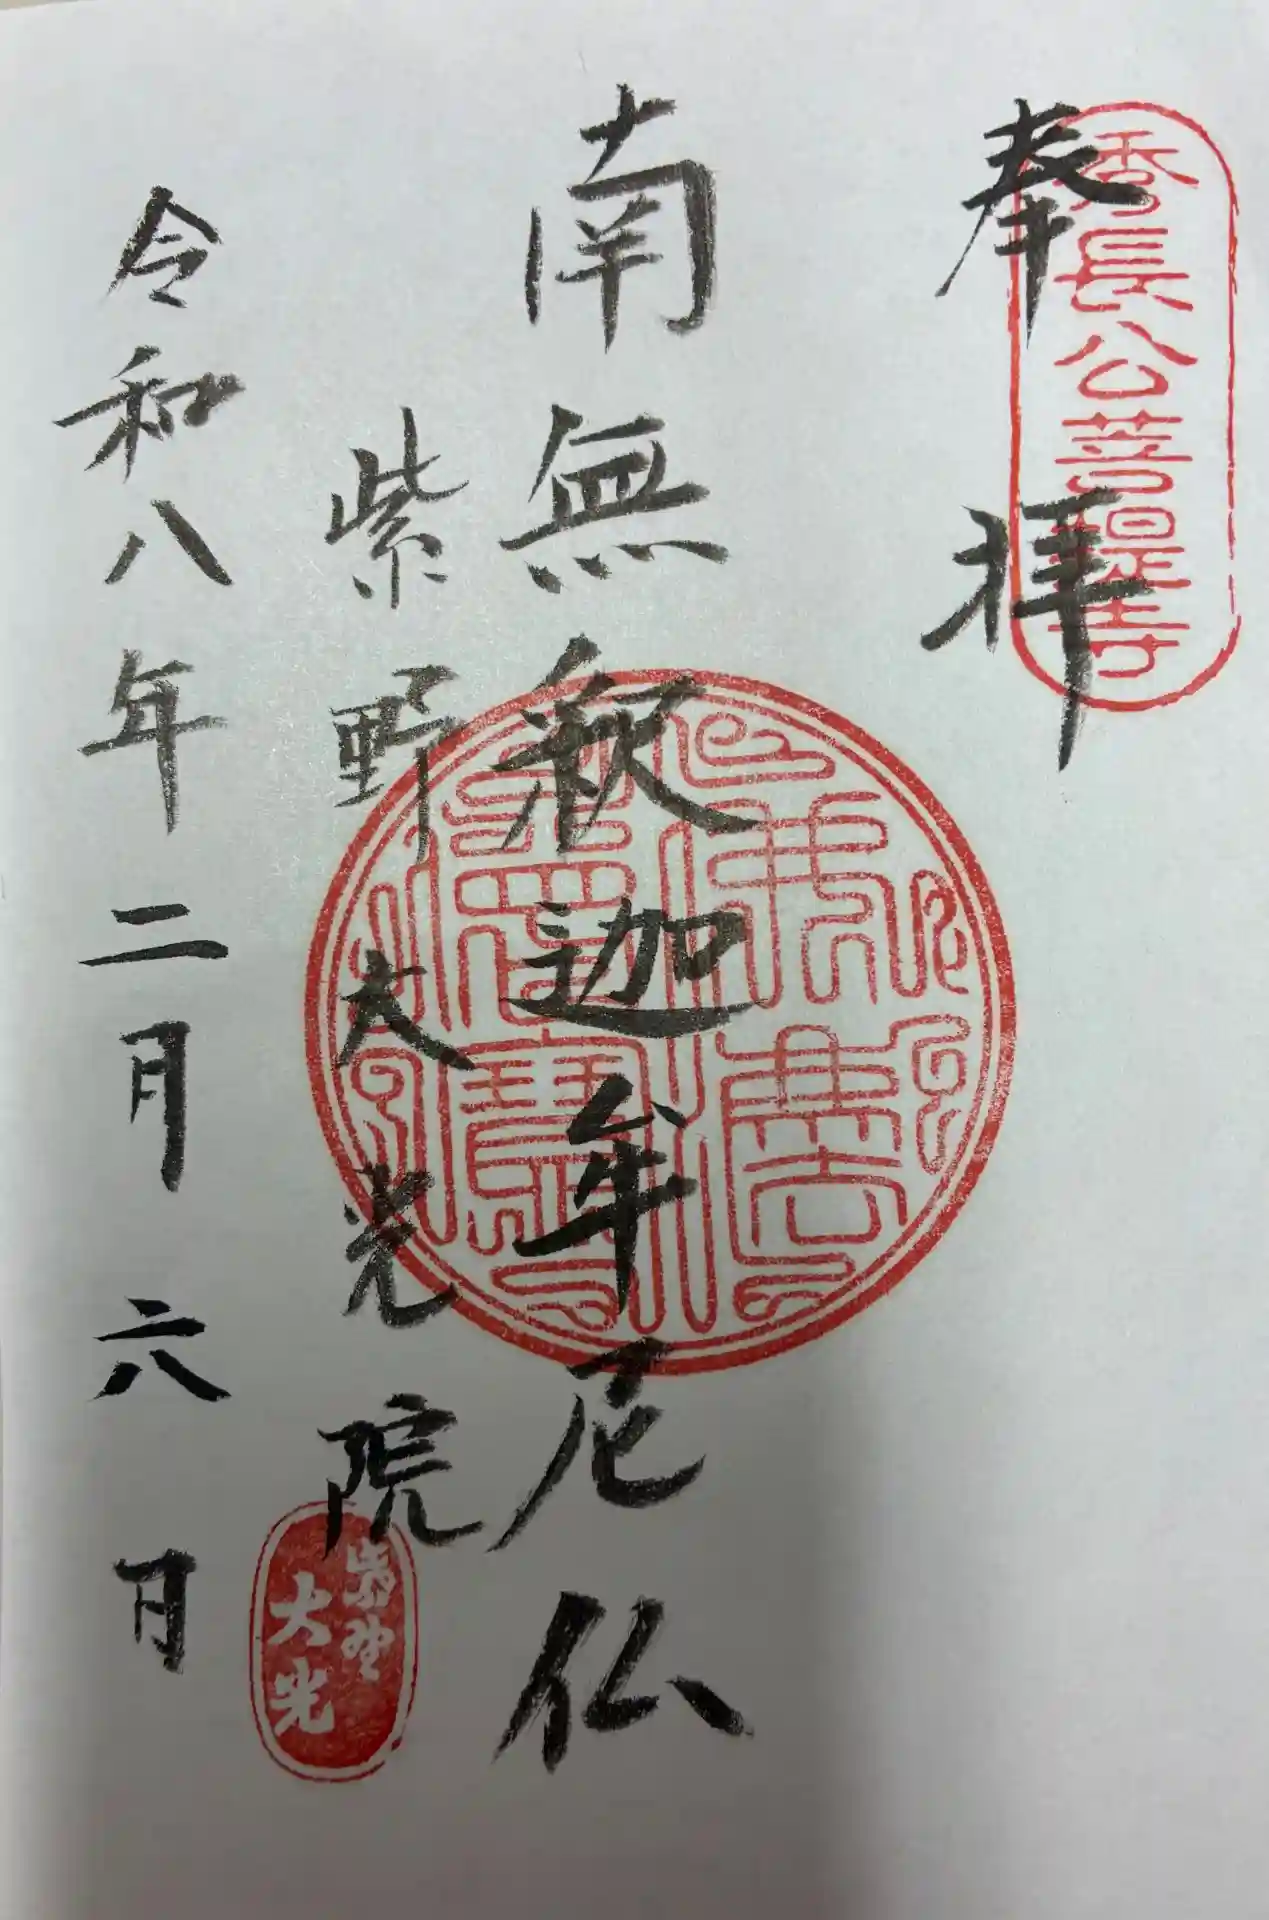 秀長公菩提寺
奉拝
南無釈迦牟尼仏
佛法
僧寶
紫野大光院
紫野
大光
令和八年二月六日